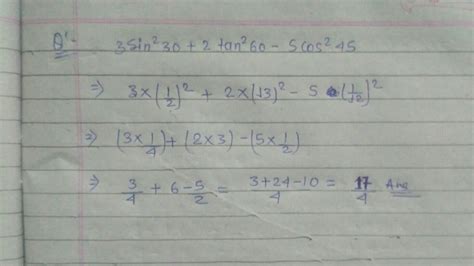 Q'- 3 sin²30 + 2 tan²60 - 5 cos²45
⇒ 3×(1/2)² + 2×(√3)² - 5 (1/√2)²
⇒ (3×1/4) + (2×3) - (5×1/2)
⇒ 3/4 + 6 - 5/2 = (3+24-10)/4 = 17/4 Ans